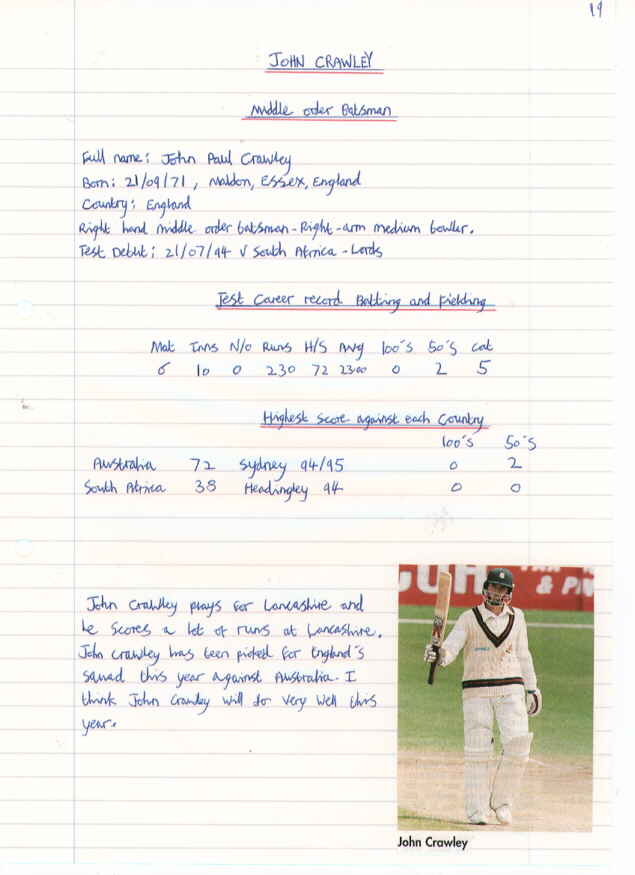 19
JOHN CRAWLEY
Middle order Batsman
Full name: John Paul Crawley
Born: 21/09/71, Maldon, Essex, England
Country: England
Right hand middle order batsman - Right-arm medium bowler.
Test Debut: 21/07/94 V South Africa - Lords
Test Career record Batting and Fielding
Mat Inns N/O Runs H/S Avg 100's 50's cat
6 10 0 230 72 23.00 0 2 5
Highest Score against each Country
100's 50's
Australia 72 Sydney 94/95 0 2
South Africa 38 Headingley 94 0 0
John Crawley plays for Lancashire and
he scores a lot of runs at Lancashire.
John Crawley has been picked for England's
squad this year against Australia. I
think John Crawley will do very well this
year.
& P
John Crawley